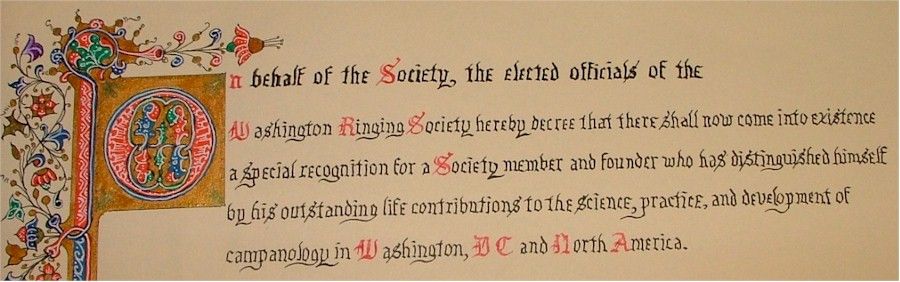 On behalf of the Society, the elected officials of the
Washington Ringing Society hereby decree that there shall now come into existence
a special recognition for a Society member and founder who has distinguished himself
by his outstanding life contributions to the science, practice, and development of
campanology in Washington, DC and North America.